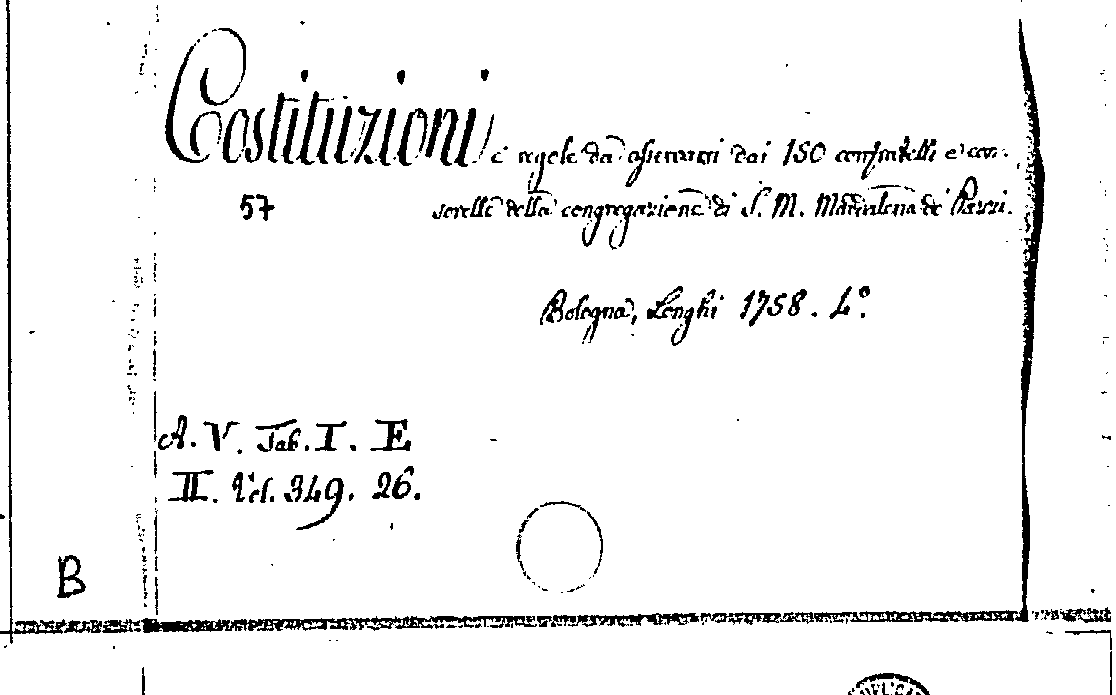 Costituzioni e regole da osservarsi dai 150 confratelli e con-
57
sorelle della congregazione di S. M. Maddalena de' Pazzi.
Bologna, Longhi 1758. 4.°
A. V. Tab. I. E
II. Vol. 349. 26.
B